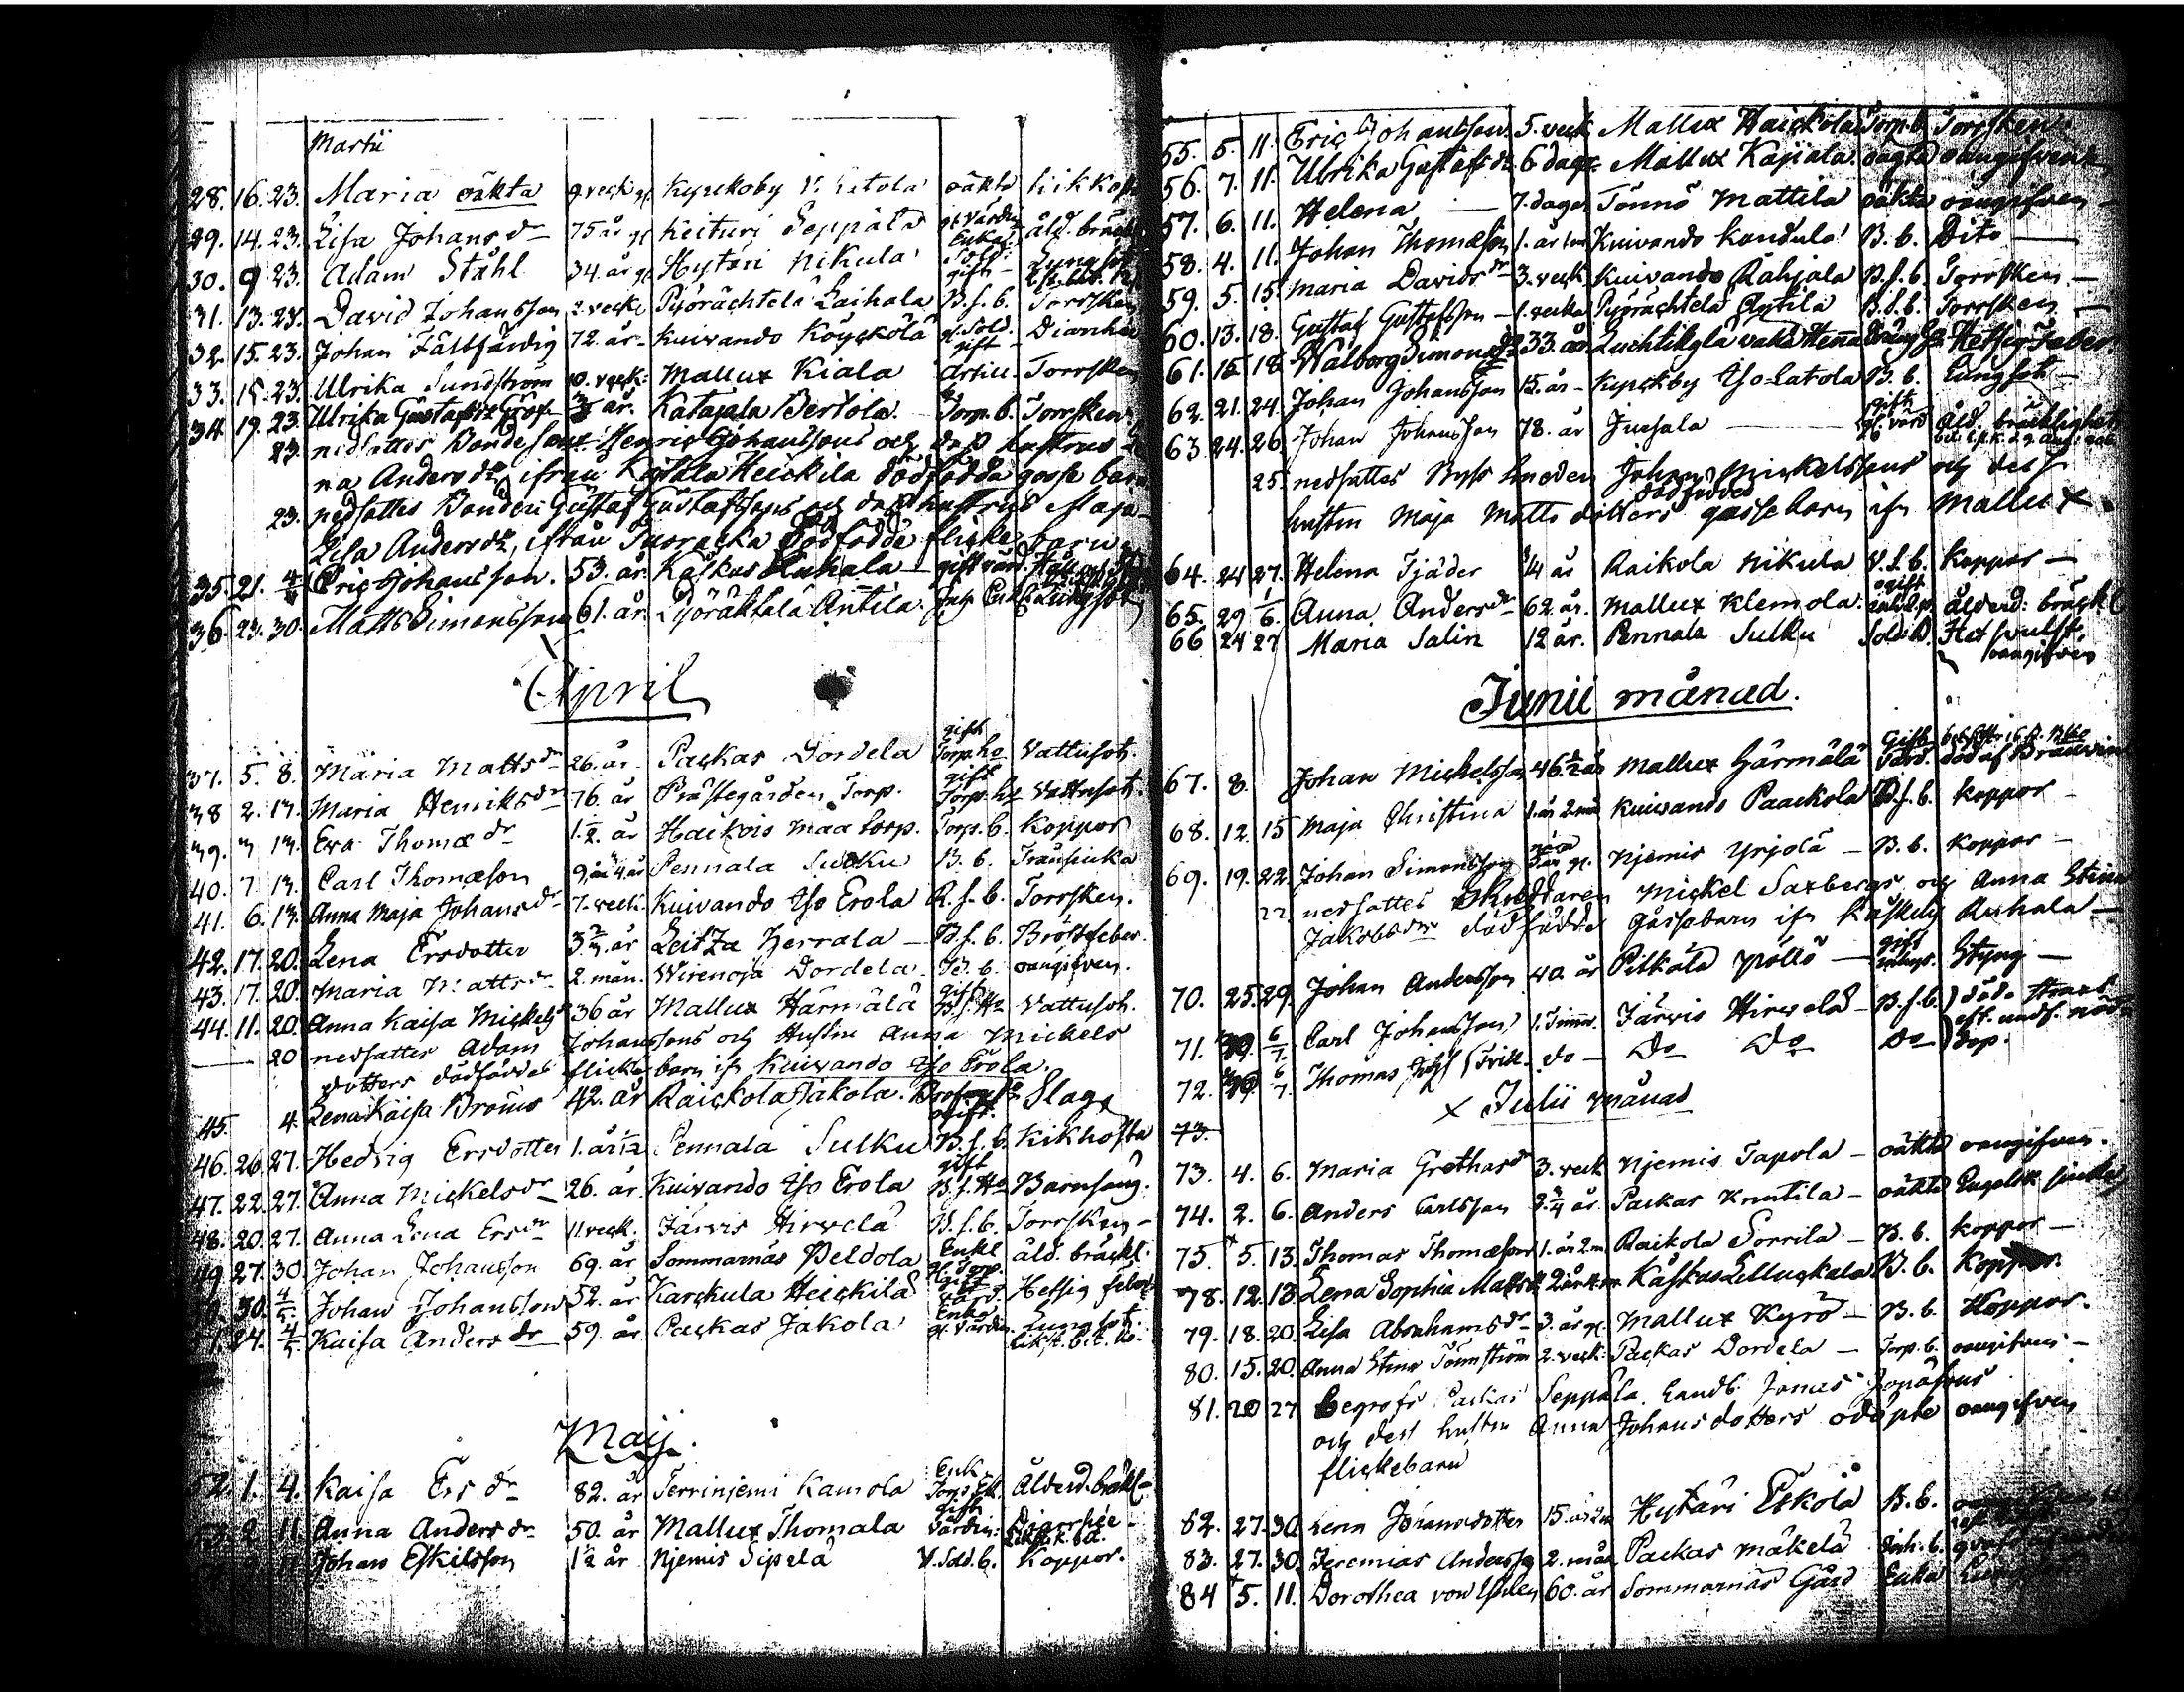 Martii
28. 16. 23. Maria oäkta 9 veck gl Kyrckoby Y. Latola oäkta kikhosta
29. 14. 23. Lisa Johans dr 75 år gl Keituri Seppälä gl. värdin Enka åld. bräckl
30. 9 23. Adam Ståhl 34. år gl Hytäri Nikula Sold: gift Lungsot
31. 13. 23. David Johansson 2. veck Pyörächtelä Laihala B. s. b. Torrsken
32. 15. 23. Johan Fältfärdig 72. år Kuivando Köyckölä gl. Sold. gift Diarrhée
33. 15. 23. Ulrika Sundström 10. veck: Mallux Kiala Torrsken
34. 19. 23. Ulrika Gustafsdr Grof år. Katajala Bertola Torp. b. Torrsken
23. nedsattes Bonde Henric Johanssons och dess hustrus
na Andersdr, ifrån Heickilä dödfödda gosse barn
23. nedsattes Bonden Gustaf Gustafssons och dess hustrus Maja
Lisa Andersdr, ifrån dödfödde flicke barn
35. 21. 4 Eric Johansson. 53. år. Kaskas Ruhala gift värd.
36. 23. 30. Matts Simonsson 61. år. Pyöräktälä Antila. Lungsot
April
37. 5. 8. Maria Mattsdr 26. år. Packas Dordela gift Torp. hu Vattusot.
38 2. 13. Maria Henriksdr 76. år Prästegården Torp. gift Torp. h Vattusot.
39. 3 13. Eva Thomædr 1 1/2. år Haickois maa torp. Torp. b. Koppor
40. 7 13. Carl Thomæson Pennala Sulku B. b. Transjuka
41. 6. 13. Anna Maja Johansdr 7. veck. Kuivando Yso Erola B. s. b. Torrsken.
42. 17. 20. Lena Ersdotter år Herrala B. s. b. Bröstfeber.
43. 17. 20. Maria Mattsdr 2. mån. Wirenoja Dordela B. b. oangifven.
44. 11. 20. Anna Kaisa Mickelsd 36 år Mallux Härmälä gift B. s. Hu Vattusot.
20 nedsattes Adam Johanssons och Hustru Anna Mickels
dotters dödfödde flicke barn ifr Kuivando Yso Erola.
45. 4. Lena Kaisa Broms 42. år Raickola Jakola. ogift. Slag
46. 26. 27. Hedvig Ersdotter 1. år 1/2 Pennala Sulku B. s. b. Kikhosta
47. 22. 27. Anna Mickelsdr 26. år. Kuivando Yso Erola gift B. s. Hu Barnsäng.
48. 20. 27. Anna Lena Ersdr 11. veck. Järvis Hirvelä B. s. b. Torrsken
49. 27. 30. Johan Johansson 69. år Sommarnäs Peldola Enkl gl. Torp. åld. bräckl.
50. 30. 4/5. Johan Johansson 52. år Karckula Heickilä gift värd. Hetsig feber
51. 24. 4/5 Kaisa Anders dr 59. år Packas Jakola Enka gl. värdin Lungsot.
Maij.
52. 1. 4. Kaisa Ers dr 82. år Terrinjemi Kamola Enk Torp. Ek. Ålderd. bräckl
53. 2. 11. Anna Anders dr 50. år Mallux Thomala gift värdin: Diarrhée
11 Johan Eskilsson 1 1/2 år Njemis Sipilä V. Sold. b. Koppor.
55. 5. 11. Eric Johansson. 5. veck Mallux Haickola Torp. b. Torrsken.
56. 7. 11. Ulrika Gustafsdr 6 dagr Mallux Kajiala. oägta oangifven
57. 6. 11. Helena 7. dagar Tönnö Mattila oäkta oangifven
58. 4. 11. Johan Thomæson 1. år 1 m Kuivando Kandula B. b. Dito
59. 5. 15. Maria Davidsdr 3. veck Kuivando Rahjala B. s. b. Torrsken
60. 13. 18. Gustaf Gustafsson 1. vecka Pyörächtelä Antila B. s. b. Torrsken
61. 15 18 Walborg Simonsdr 33. år Luchtikylä Hetsig Feber.
62. 21. 24. Johan Johansson 15. år Kyrckby Yso-Latola B. b. Lungsot
63 24. 26. Johan Johansson 78. år Jussala gift gl. värd åld. bräcklighet
25. nedsattes Johan Mickelssons och dess
hustru Maja Matts dotters dödfödde gosse barn ifr Mallux.
64. 24 27. Helena Tjäder år Raikola Nikula V. s. b. Koppor
65. 29 6. Anna Andersdr 62. år. Mallux Klemola. ogift ålderd: bräckl
66 24 27 Maria Salin 12 år. Pennala Sulku Sold. D. oangifven
Junii månad.
67. 8. Johan Mickelsson 46 1/2 år Mallux Härmälä Gift Värd. död af Bränvin
68. 12. 15 Maja Christina 1. år 2. mån Kuivando Paackola B. s. b. koppor
69. 19. 22. Johan Simonsson år gl. Njemis Yrjölä B. b. koppor
22 nedsattes Skräddaren Mickel Saxbergs och Anna Stina
Jakobsdrs dödfödde gossebarn ifr Kaskas Ruhala
70. 25. 29. Johan Andersson 40. år Pilkälä Pöllö gift Styng
71. 30. 6/7. Carl Johansson 1. Timm. Järvis Hirvelä B. s. b. död strax eft. undf. nöd-
72. 30. 6/7. Thomas (Trill. do Do Do Do dop.
Julii månad
73.
73. 4. 6. Maria Grethasdr 3. veck Njemis Tapola oäkta oangifven.
74. 2. 6. Anders Carlsson år Packas Knutila oäkta Engelsk sjuka
75 5. 13. Thomas Thomæson 1. år 2. m. Raikola Sorrila B. b. koppor
78. 12. 13 Lena Sophia Mattsdr 2 år Kaskas Lelluckala. B. b. Koppor.
79. 18. 20. Lisa Abrahamsdr 3. år gl. Mallux Kyrö B. b. Koppor.
80. 15. 20. Anna Stina Tönnström 2. veck: Packas Dordela Torp. b. oangifven
81. 20 27. Begrofs Packas Seppälä Landb. Jonas Jonæsons
och dess hustru Anna Johansdotters odöpte oangifven
flickebarn
82. 27. 30. Lena Johansdotter 15. år Hytäri Eskola B. b.
83. 27. 30. Jeremias Andersson 2. mån Packas Mäkelä
84 5. 11. Dorothea von Essen 60. år Sommarnäs Gård Enka